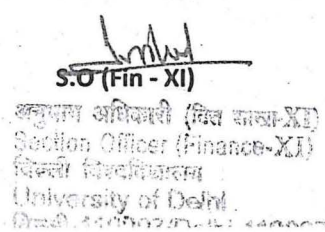 S.O (Fin - XI)
अनुभाग अधिकारी (वित्त शाखा-XI)
Section Officer (Finance-XI)
दिल्ली विश्वविद्यालय
University of Delhi